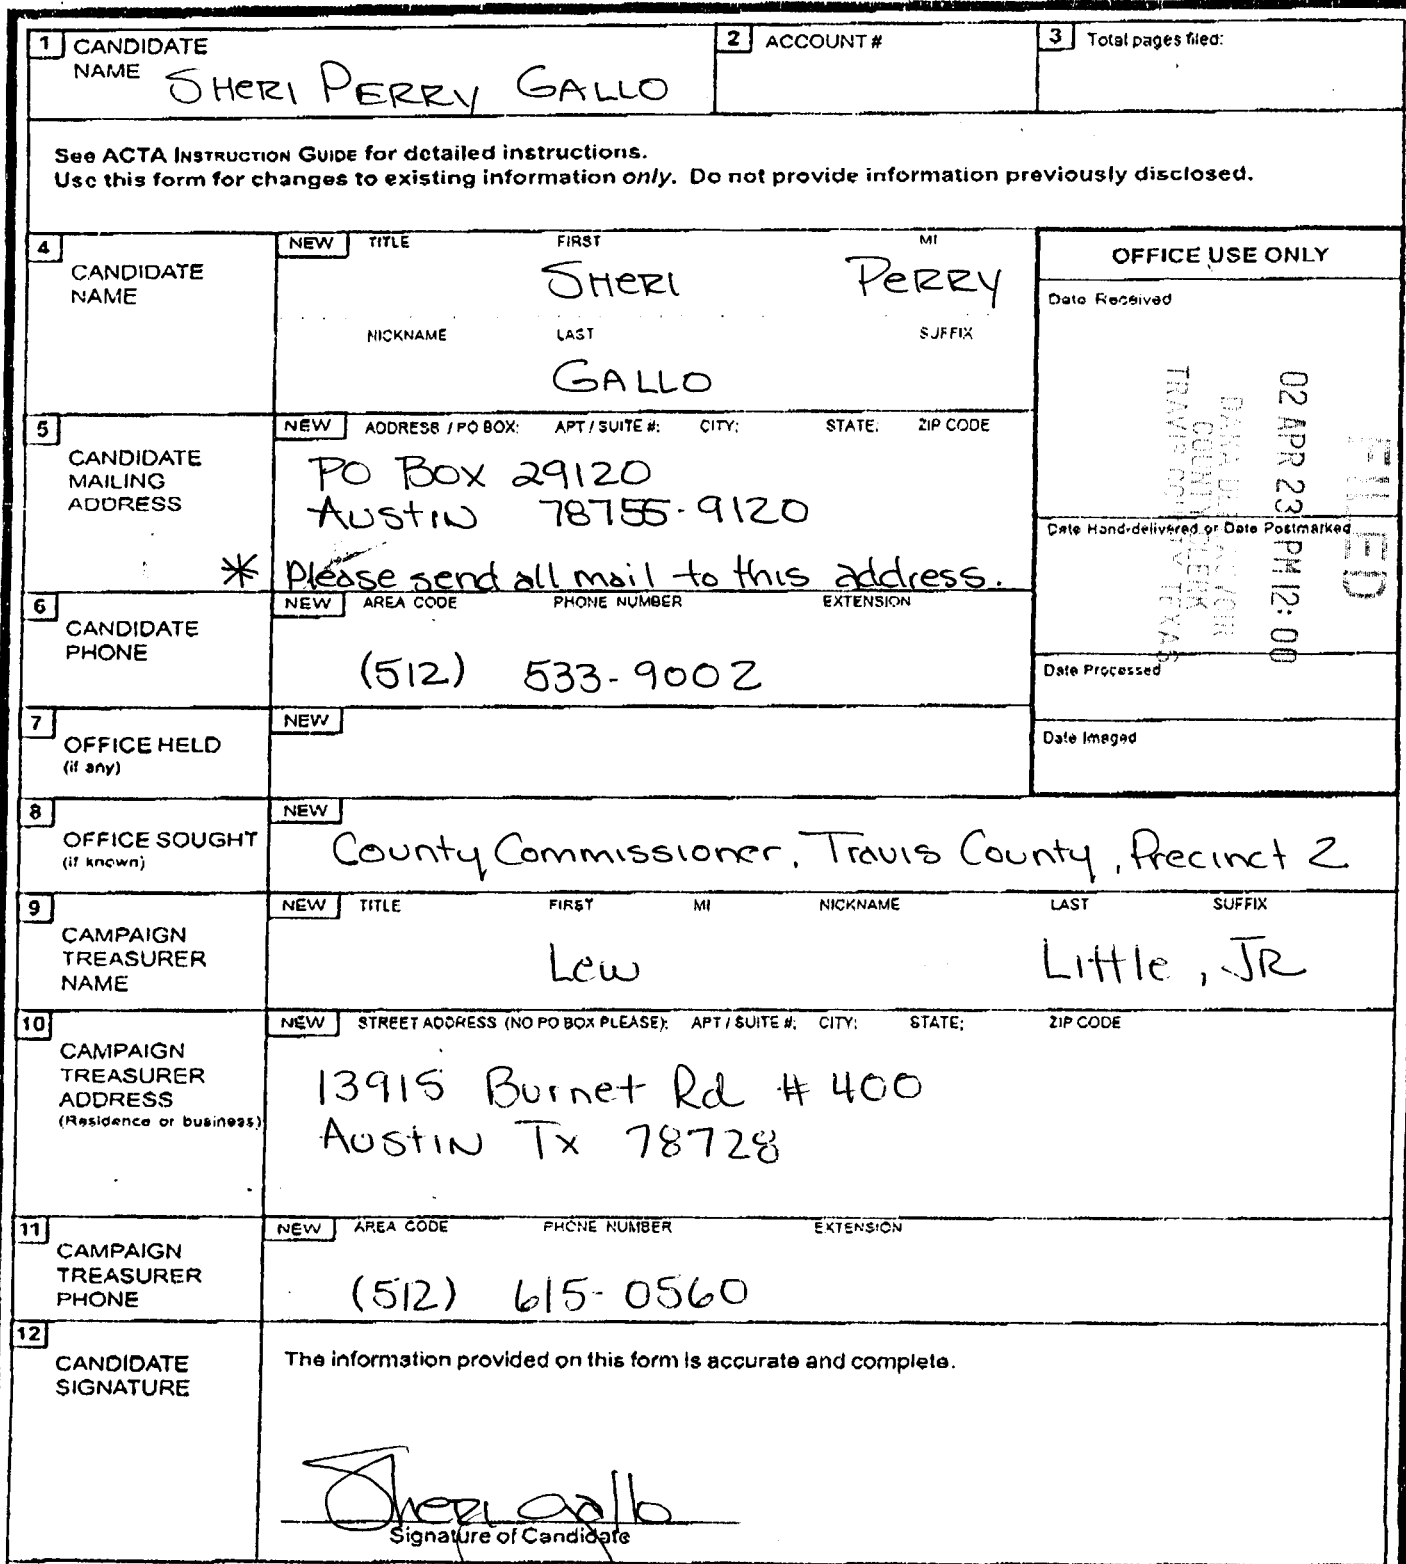 1 CANDIDATE NAME SHERI PERRY GALLO
2 ACCOUNT #
3 Total pages filed:
See ACTA INSTRUCTION GUIDE for detailed instructions.
Use this form for changes to existing information only. Do not provide information previously disclosed.
4 CANDIDATE NAME
NEW TITLE FIRST MI
SHERI PERRY
NICKNAME LAST SUFFIX
GALLO
OFFICE USE ONLY
Date Received
FILED
02 APR 23 PM 12: 00
COUNTY CLERK
TRAVIS COUNTY TEXAS
Date Hand-delivered or Date Postmarked
Date Processed
Date Imaged
5 CANDIDATE MAILING ADDRESS
NEW ADDRESS / PO BOX; APT / SUITE #; CITY; STATE; ZIP CODE
PO Box 29120
Austin 78755-9120
* Please send all mail to this address.
6 CANDIDATE PHONE
NEW AREA CODE PHONE NUMBER EXTENSION
(512) 533-9002
7 OFFICE HELD (if any)
NEW
8 OFFICE SOUGHT (if known)
NEW
County Commissioner, Travis County, Precinct 2
9 CAMPAIGN TREASURER NAME
NEW TITLE FIRST MI NICKNAME LAST SUFFIX
Lew Little, JR
10 CAMPAIGN TREASURER ADDRESS (Residence or business)
NEW STREET ADDRESS (NO PO BOX PLEASE); APT / SUITE #; CITY; STATE; ZIP CODE
13915 Burnet Rd # 400
Austin Tx 78728
11 CAMPAIGN TREASURER PHONE
NEW AREA CODE PHONE NUMBER EXTENSION
(512) 615-0560
12 CANDIDATE SIGNATURE
The information provided on this form is accurate and complete.
Sheri Gallo
Signature of Candidate